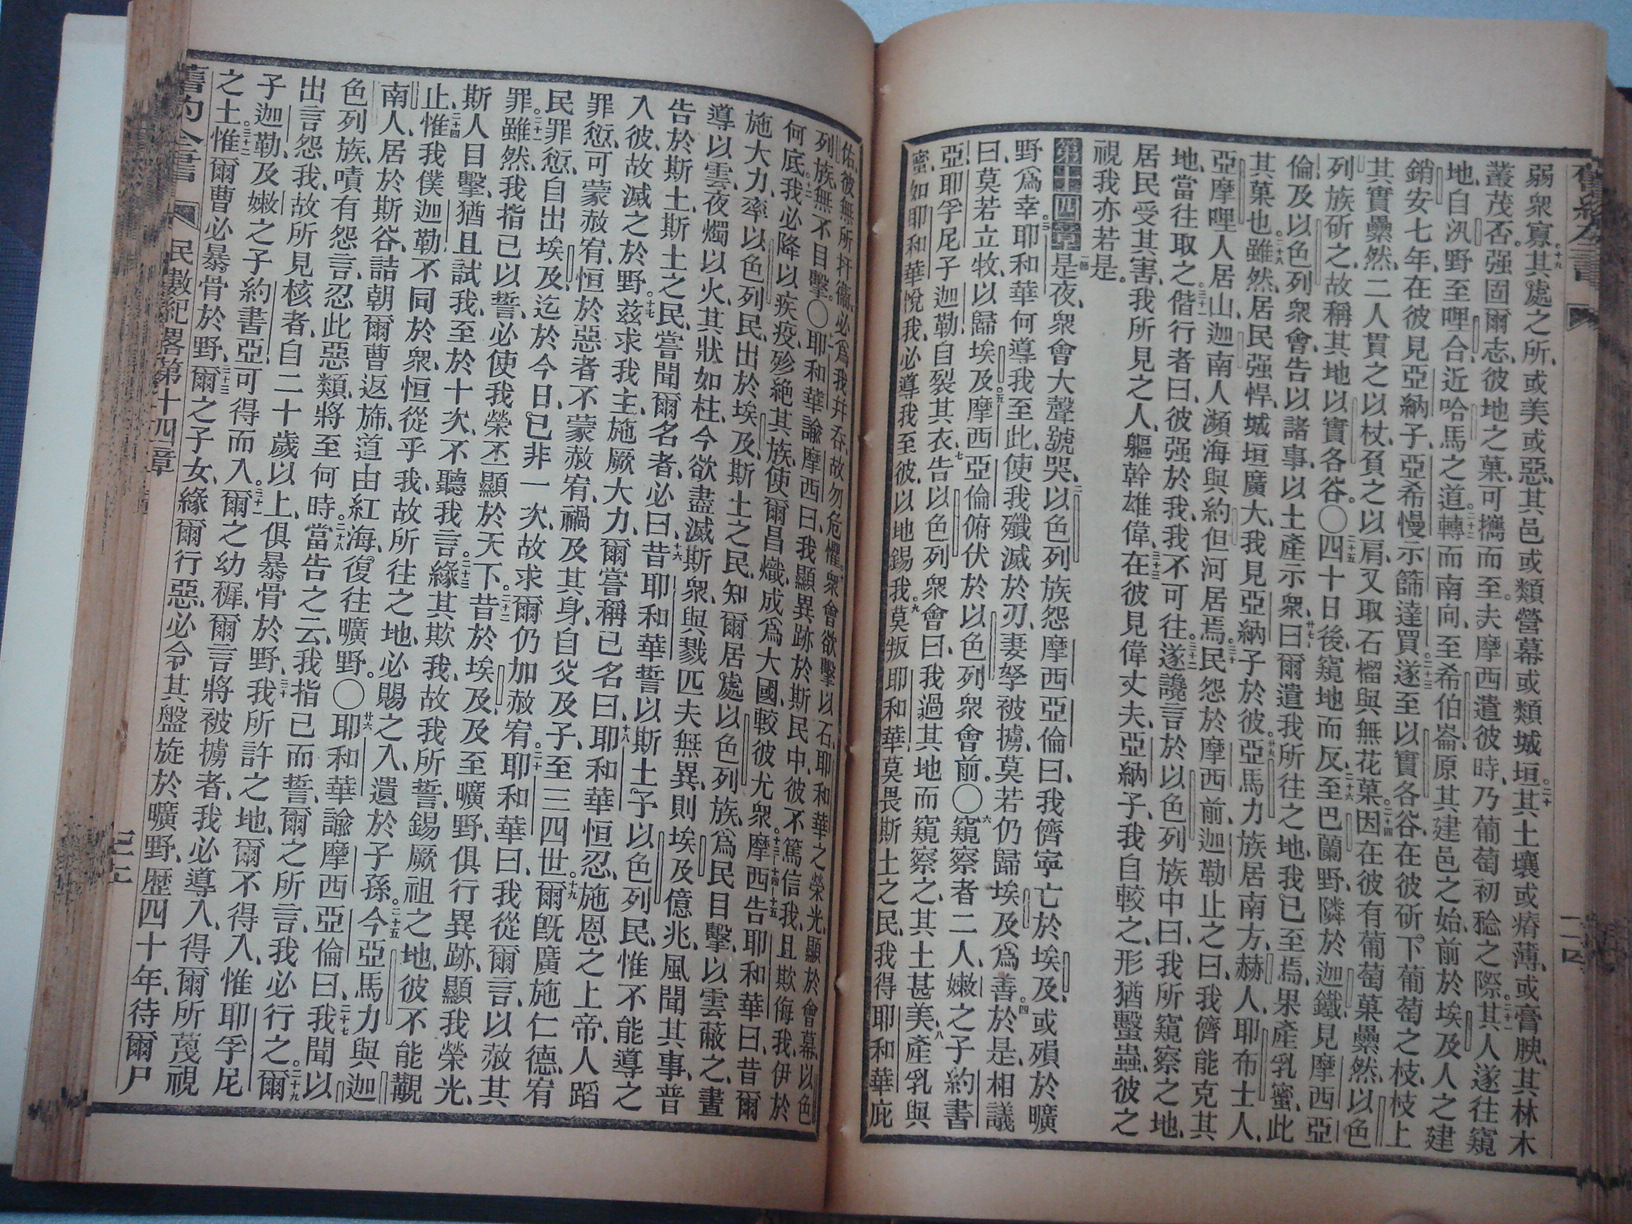 弱衆寡、其處之所、或美或惡、其邑或類營幕、或類城垣、二十其土壤或瘠薄、或膏腴、其林木
叢茂否、强固爾志、彼地之菓、可攜而至、夫摩西遣彼時、乃葡萄初稔之際、二十一其人遂往窺
地、自汛野至哩合、近哈馬之道、二十二轉而南向、至希伯崙、原其建邑之始、前於埃及人之建
銷安七年、在彼見亞納子、亞希慢示篩達買、二十三遂至以實各谷、在彼斫下葡萄之枝、枝上
其實纍然、二人貫之以杖、負之以肩、又取石榴與無花菓、二十四因在彼有葡萄菓纍然、以色
列族斫之、故稱其地以實各谷。〇二十五四十日後、窺地而反、二十六至巴蘭野、隣於迦鐵、見摩西亞
倫、及以色列衆會、告以諸事、以土產示衆、廿七曰、爾遣我所往之地、我已至焉、果產乳蜜、此
其菓也、二十八雖然、居民强悍、城垣廣大、我見亞納子於彼、廿九亞馬力族居南方、赫人、耶布士人、
亞摩哩人居山、迦南人瀕海與約但河居焉、三十民怨於摩西前、迦勒止之曰、我儕能克其
地、當往取之、三十一偕行者曰、彼强於我、我不可往、三十二遂讒言於以色列族中曰、我所窺察之地、
居民受其害、我所見之人、軀幹雄偉、三十三在彼見偉丈夫、亞納子、我自較之、形猶蟿蟲、彼之
視我亦若是。
第十四章 一節是夜、衆會大聲號哭、二以色列族怨摩西亞倫曰、我儕寧亡於埃及、或殞於曠
野、爲幸、三耶和華何導我至此、使我殲滅於刃、妻孥被擄、莫若仍歸埃及、爲善、四於是、相議
曰、莫若立牧、以歸埃及、五摩西亞倫俯伏於以色列衆會前。〇六窺察者二人、嫩之子約書
亞、耶孚尼子迦勒、自裂其衣、七告以色列衆會曰、我過其地而窺察之、其土甚美、八產乳與
蜜、如耶和華悅我、必導我至彼、以地錫我、九莫叛耶和華、莫畏斯土之民、我得耶和華庇
佑、彼無所扞衞、必爲我幷吞、故勿危懼、十衆會欲擊以石、耶和華之榮光、顯於會幕、以色
列族、無不目擊。〇十一耶和華諭摩西曰、我顯異跡於斯民中、彼不篤信我、且欺侮我、伊於
何底、十二我必降以疾疫、殄絕其族、使爾昌熾、成爲大國、較彼尤衆、十三十四十五摩西告耶和華曰、昔爾
施大力、率以色列民、出於埃及、斯土之民、知爾居處以色列族、爲民目擊、以雲蔽之、晝
導以雲、夜燭以火、其狀如柱、今欲盡滅斯衆、與戮匹夫無異、則埃及億兆、風聞其事、普
告於斯土、斯土之民、嘗聞爾名者、必曰、十六昔耶和華誓以斯土、予以色列民、惟不能導之
入彼、故滅之於野、十七兹求我主、施厥大力、爾嘗稱己名曰、十八耶和華恒忍、施恩之上帝、人蹈
罪愆、可蒙赦宥、恒於惡者、不蒙赦宥、禍及其身、自父及子、至三四世、十九爾旣廣施仁德、宥
民罪愆、自出埃及、迄於今日、已非一次、故求爾仍加赦宥、二十耶和華曰、我從爾言、以赦其
罪、二十一雖然、我指己以誓、必使我榮丕顯於天下、二十二昔於埃及、及至曠野、俱行異跡、顯我榮光、
斯人目擊、猶且試我、至於十次、不聽我言、二十三緣其欺我、故我所誓錫厥祖之地、彼不能覩、
止、二十四惟我僕迦勒、不同於衆、恒從乎我、故所往之地、必賜之入、遺於子孫、二十五今亞馬力與迦
南人、居於斯谷、詰朝爾曹返旆、道由紅海、復往曠野。〇廿六耶和華諭摩西亞倫曰、二十七我聞以
色列族、嘖有怨言、忍此惡類、將至何時、二十八當告之云、我指己而誓、爾之所言、我必行之、二十九爾
出言怨我、故所見核者、自二十歲以上、俱暴骨於野、三十我所許之地、爾不得入、惟耶孚尼
子迦勒、及嫩之子約書亞、可得而入、三十一爾之幼穉、爾言將被擄者、我必導入、得爾所蔑視
之土、三十二惟爾曹必暴骨於野、三十三爾之子女、緣爾行惡、必令其盤旋於曠野、歷四十年、待爾尸
舊約全書 民數紀畧第十四章